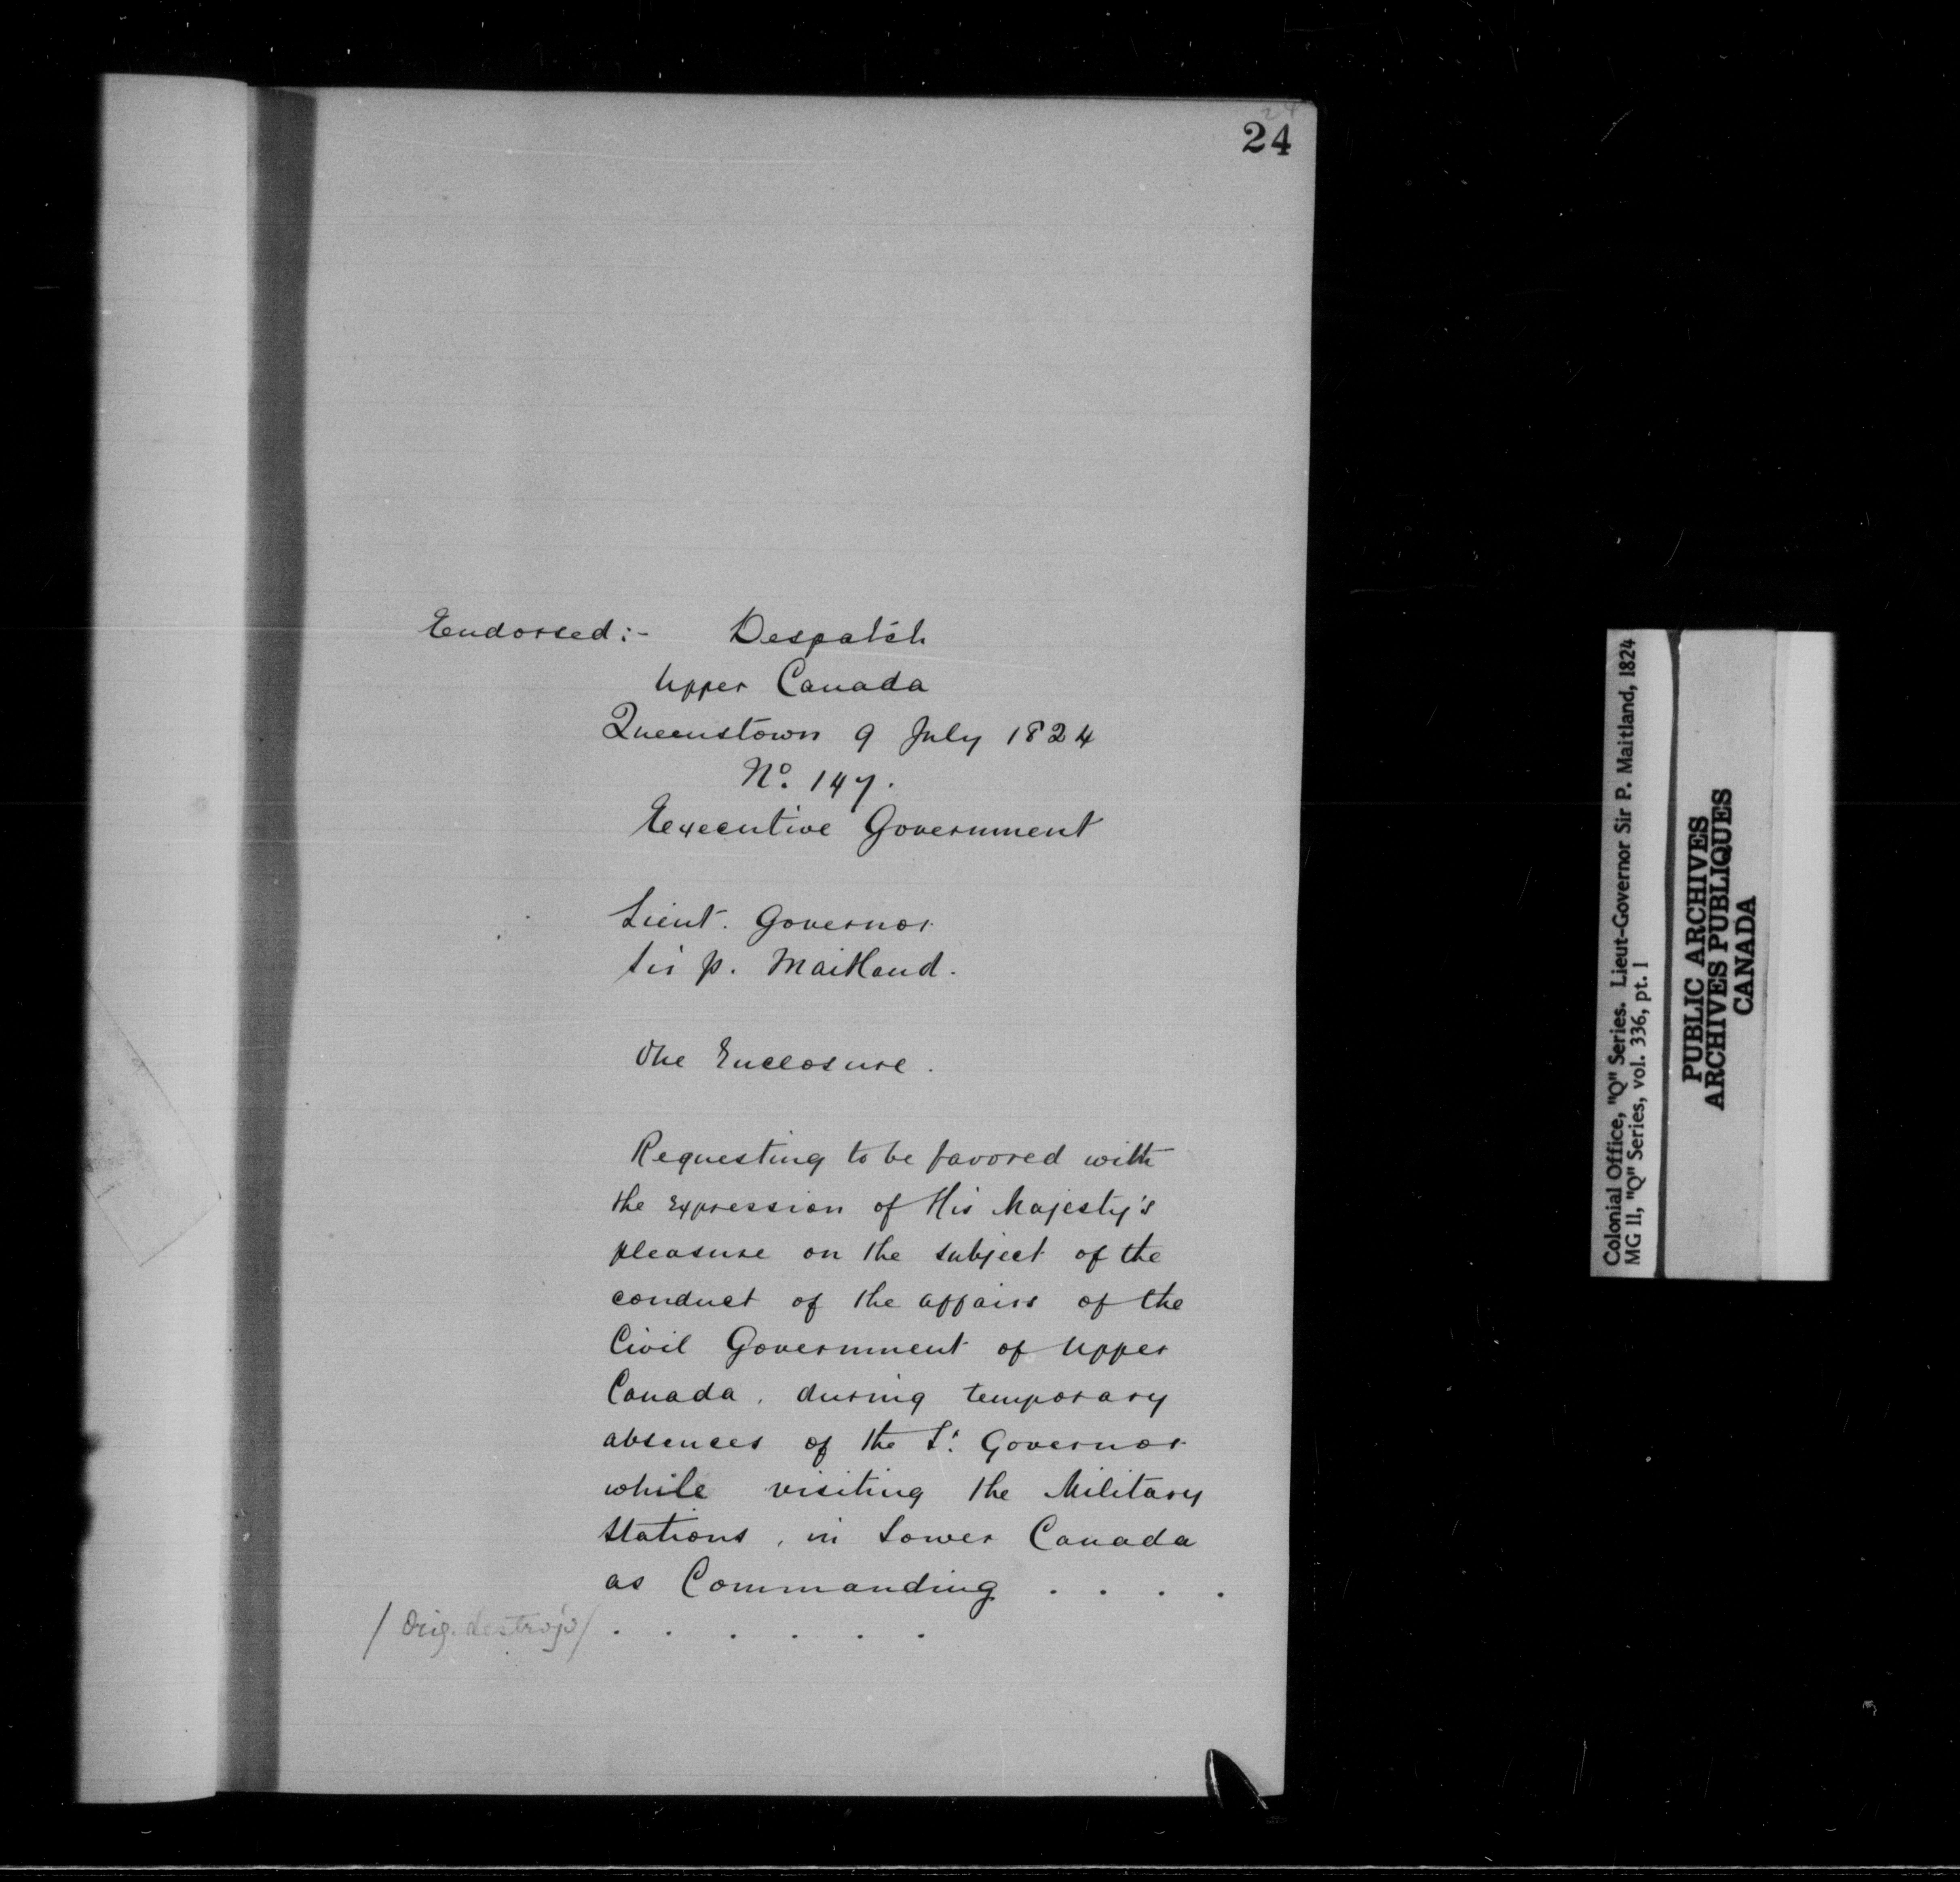 24
24
Endorsed:- Despatch
Upper Canada
Queenstown 9 July 1824
No. 147.
Executive Government
Lieut. Governor
Sir P. Maitland.
One Enclosure.
Requesting to be favored with
the expression of His Majesty's
pleasure on the subject of the
conduct of the affairs of the
Civil Government of Upper
Canada, during temporary
absences of the Lt. Governor
while visiting the Military
Stations, in Lower Canada
as Commanding . . . .
/ Orig. destroy'd / . . . . . .
Colonial Office, "Q" Series. Lieut-Governor Sir P. Maitland, 1824
MG 11, "Q" Series, vol. 336, pt. 1
PUBLIC ARCHIVES
ARCHIVES PUBLIQUES
CANADA